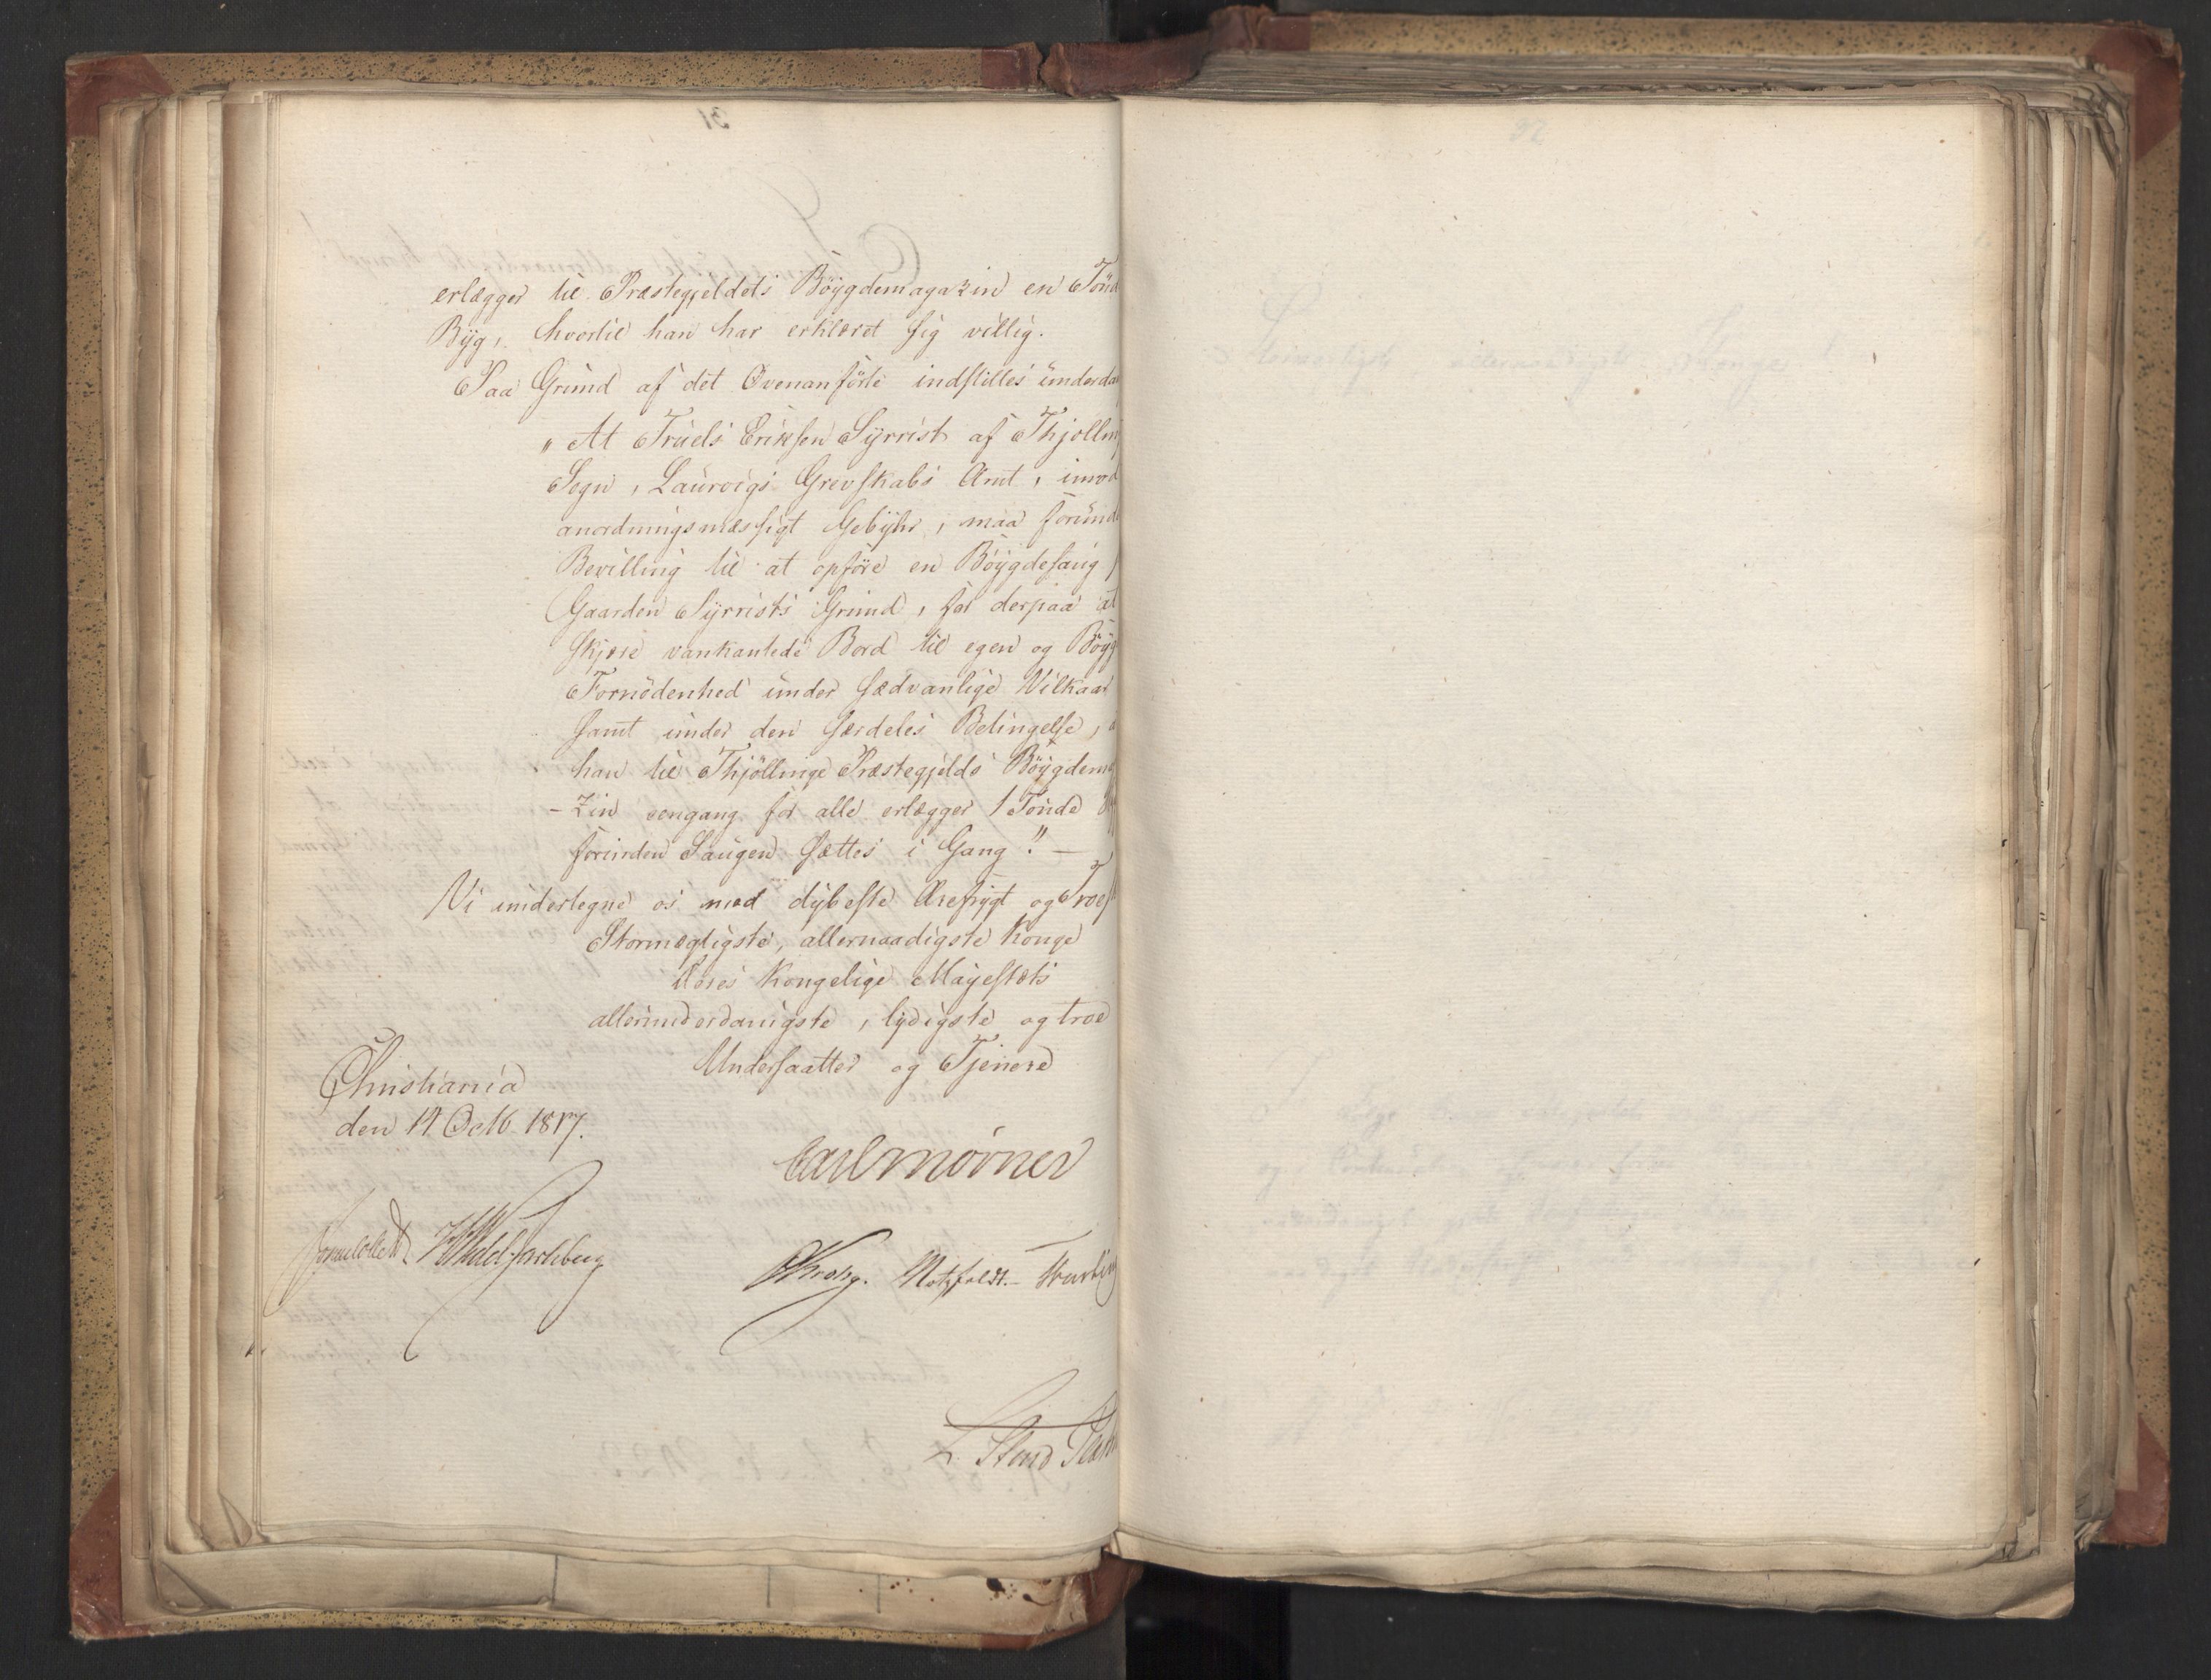 erlægger til Præstegjeldets Böygdemagazin en Tönd
Byg, hvortil han har erklæret sig villig.
Paa Grund af det Ovenanförte indstilles underda
"At Truels Eriksen Syrrist af Thjölling
Sogn, Laurvigs Grevskabs Amt, imod
anordningsmæssigt Gebyhr, maa forunde
Bevilling til at opföre en Böygdesaug
Gaarden Syrrists Grund, for derpaa at
skjære vankantede Bord til egen og Böyg
Fornödenhed under sædvanlige Vilkaar
samt under den særdeles Betingelse, a
han til Thjöllinge Præstegjelds Böygdema
-zin eengang for alle erlægger 1 Tönde
forinden Saugen sættes i Gang." —
Vi undertegne os med dybeste Ærefrygt og Troes
Stormægtigste, allernaadigste Konge
Deres Kongelige Mayestæts
allerunderdanigste, lydigste og troe
Undersaatter og Tjenere
Christiania
den 14 Octb 1817.
Carl Mörner
Sommerhielm HWedel Jarlsberg
CKrohg. Motzfeldt.
L. Stoud Plat